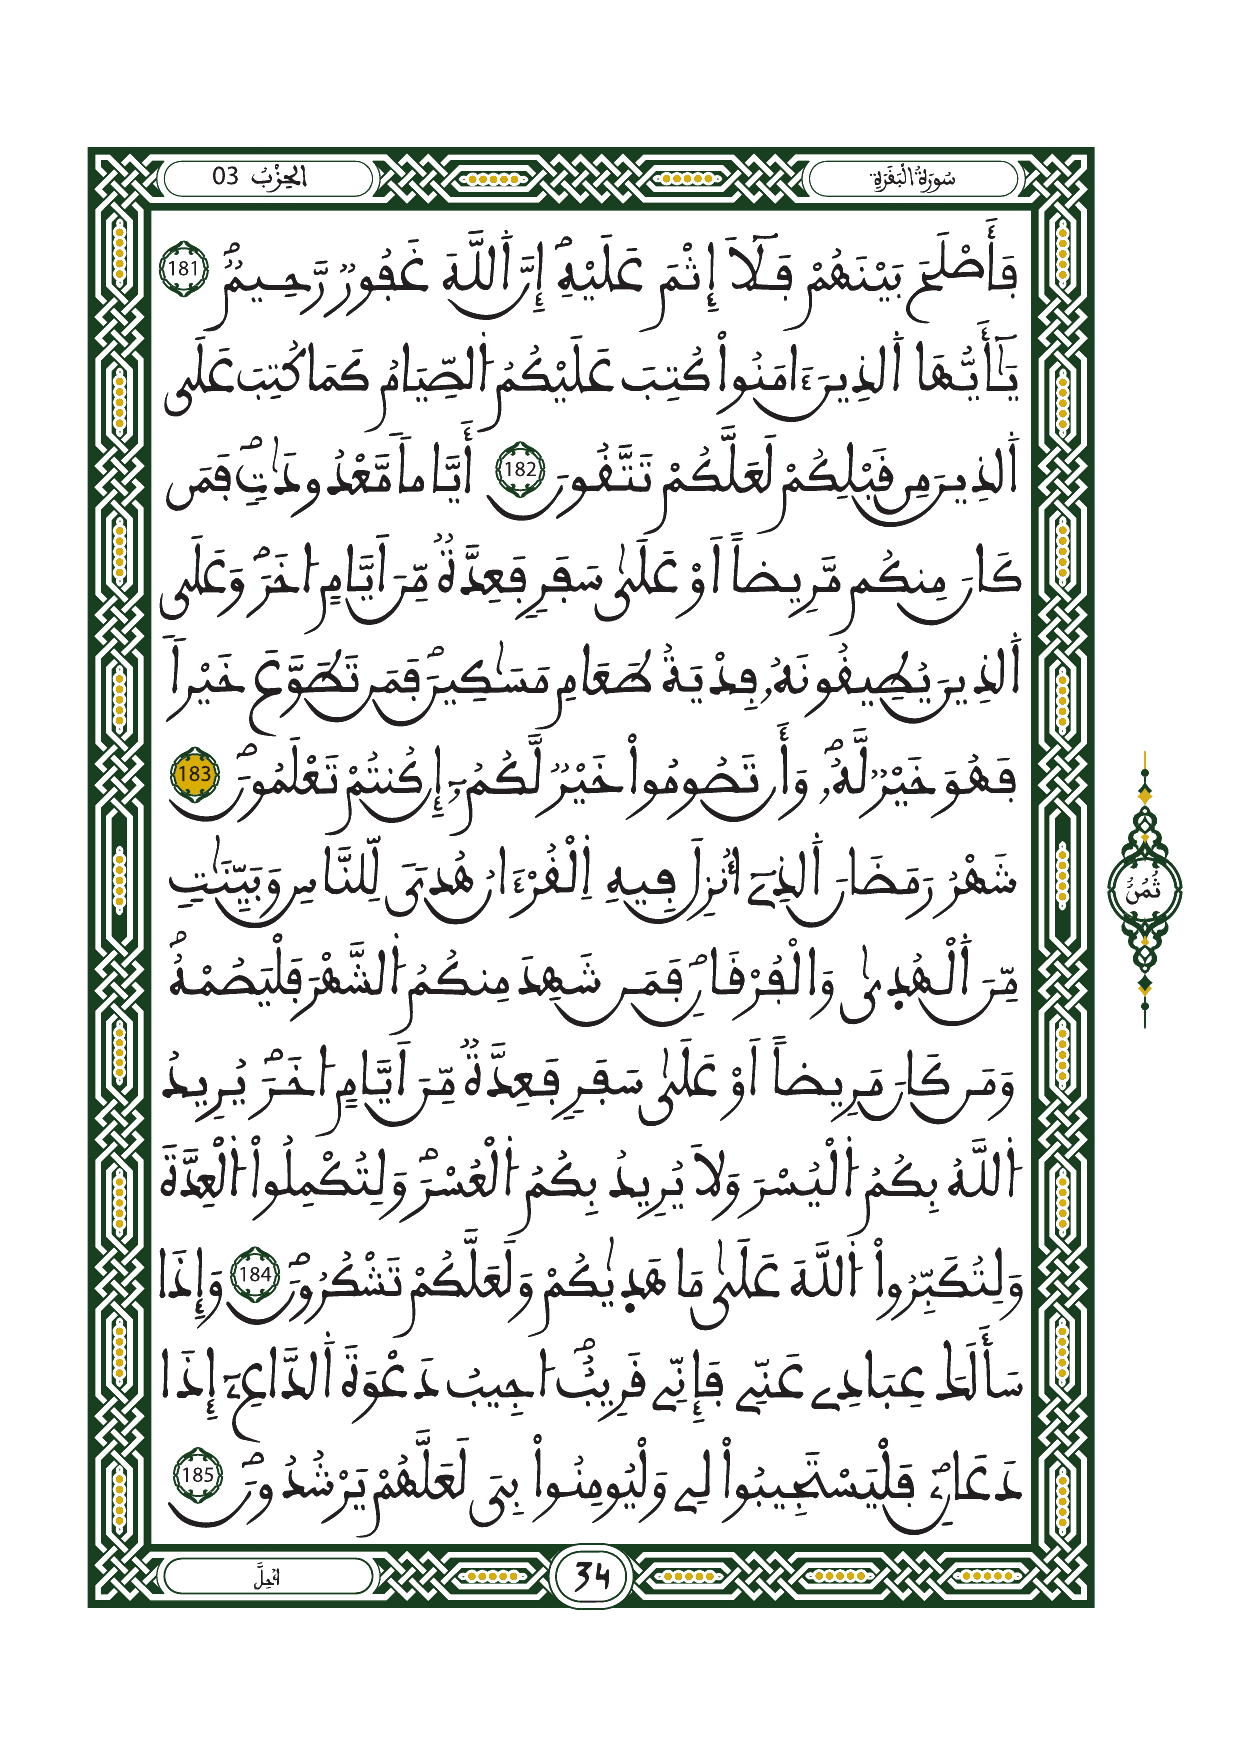 سُورَةُ الْبَقَرَةِ
الْحِزْبُ 03
فَأَصْلَحَ بَيْنَهُمْ فَلَآ إِثْمَ عَلَيْهِۖ إِنَّ اَ۬للَّهَ غَفُورٞ رَّحِيمٞۖ 181
يَٰٓأَيُّهَا اَ۬لذِينَ ءَامَنُواْ كُتِبَ عَلَيْكُمُ اُ۬لصِّيَامُ كَمَا كُتِبَ عَلَي
اَ۬لذِينَ مِن قَبْلِكُمْ لَعَلَّكُمْ تَتَّقُونَ 182 أَيَّاماٗ مَّعْدُودَٰتٖۖ فَمَن
كَانَ مِنكُم مَّرِيضاً اَوْ عَلَىٰ سَفَرٖ فَعِدَّةٞ مِّنَ اَيَّامٍ اُخَرَۖ وَعَلَي
اَ۬لذِينَ يُطِيقُونَهُۥ فِدْيَةُ طَعَامِ مَسَٰكِينَۖ فَمَن تَطَوَّعَ خَيْراٗ
فَهُوَ خَيْرٞ لَّهُۥۖ وَأَن تَصُومُواْ خَيْرٞ لَّكُمُۥٓ إِن كُنتُمْ تَعْلَمُونَۖ 183
شَهْرُ رَمَضَانَ اَ۬لذِےٓ أُنزِلَ فِيهِ اِ۬لْقُرْءَانُ هُديٗ لِّلنَّاسِ وَبَيِّنَٰتٖ
مِّنَ اَ۬لْهُد۪ىٰ وَالْفُرْقَانِۖ فَمَن شَهِدَ مِنكُمُ اُ۬لشَّهْرَ فَلْيَصُمْهُۖ
وَمَن كَانَ مَرِيضاً اَوْ عَلَىٰ سَفَرٖ فَعِدَّةٞ مِّنَ اَيَّامٍ اُخَرَۖ يُرِيدُ
اُ۬للَّهُ بِكُمُ اُ۬لْيُسْرَ وَلَا يُرِيدُ بِكُمُ اُ۬لْعُسْرَۖ وَلِتُكْمِلُواْ اُ۬لْعِدَّةَ
وَلِتُكَبِّرُواْ اُ۬للَّهَ عَلَىٰ مَا هَد۪يٰكُمْ وَلَعَلَّكُمْ تَشْكُرُونَۖ 184 وَإِذَا
سَأَلَكَ عِبَادِے عَنِّے فَإِنِّے قَرِيبٌۖ اُجِيبُ دَعْوَةَ اَ۬لدَّاعِۦٓ إِذَا
دَعَانِۦۖ فَلْيَسْتَجِيبُواْ لِے وَلْيُومِنُواْ بِيَ لَعَلَّهُمْ يَرْشُدُونَۖ 185
ثُمُنُ
34